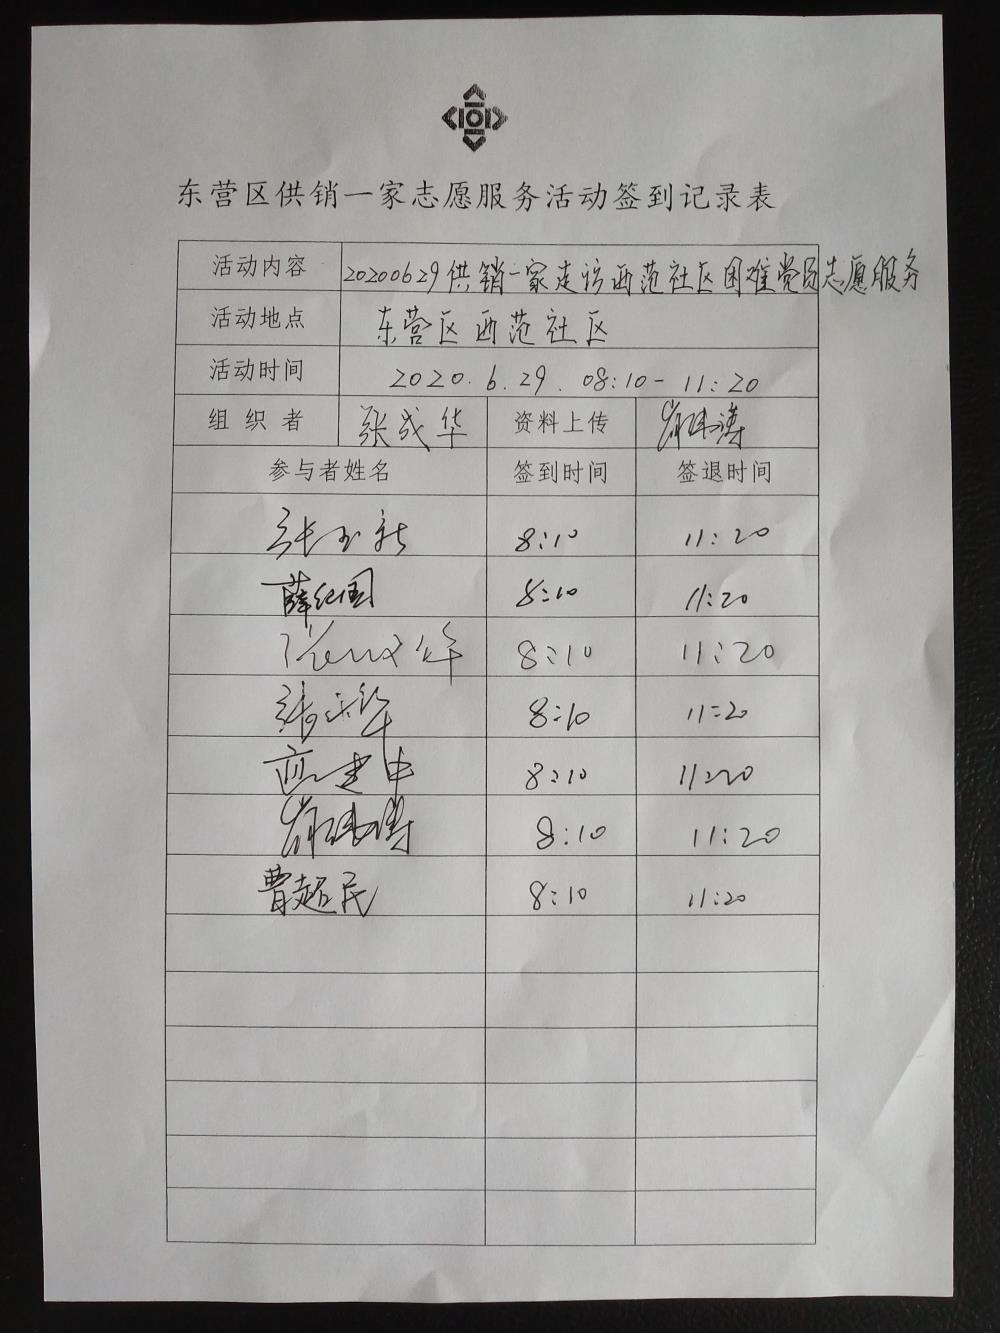 东营区供销一家志愿服务活动签到记录表
活动内容 20200629供销一家走访西范社区困难党员志愿服务
活动地点 东营区西范社区
活动时间 2020.6.29. 08:10-11:20
组织者 张成华 资料上传
参与者姓名 签到时间 签退时间
张玉新 8:10 11:20
薛纪国 8:10 11:20
8:10 11:20
8:10 11:20
8:10 11:20
8:10 11:20
曹超民 8:10 11:20